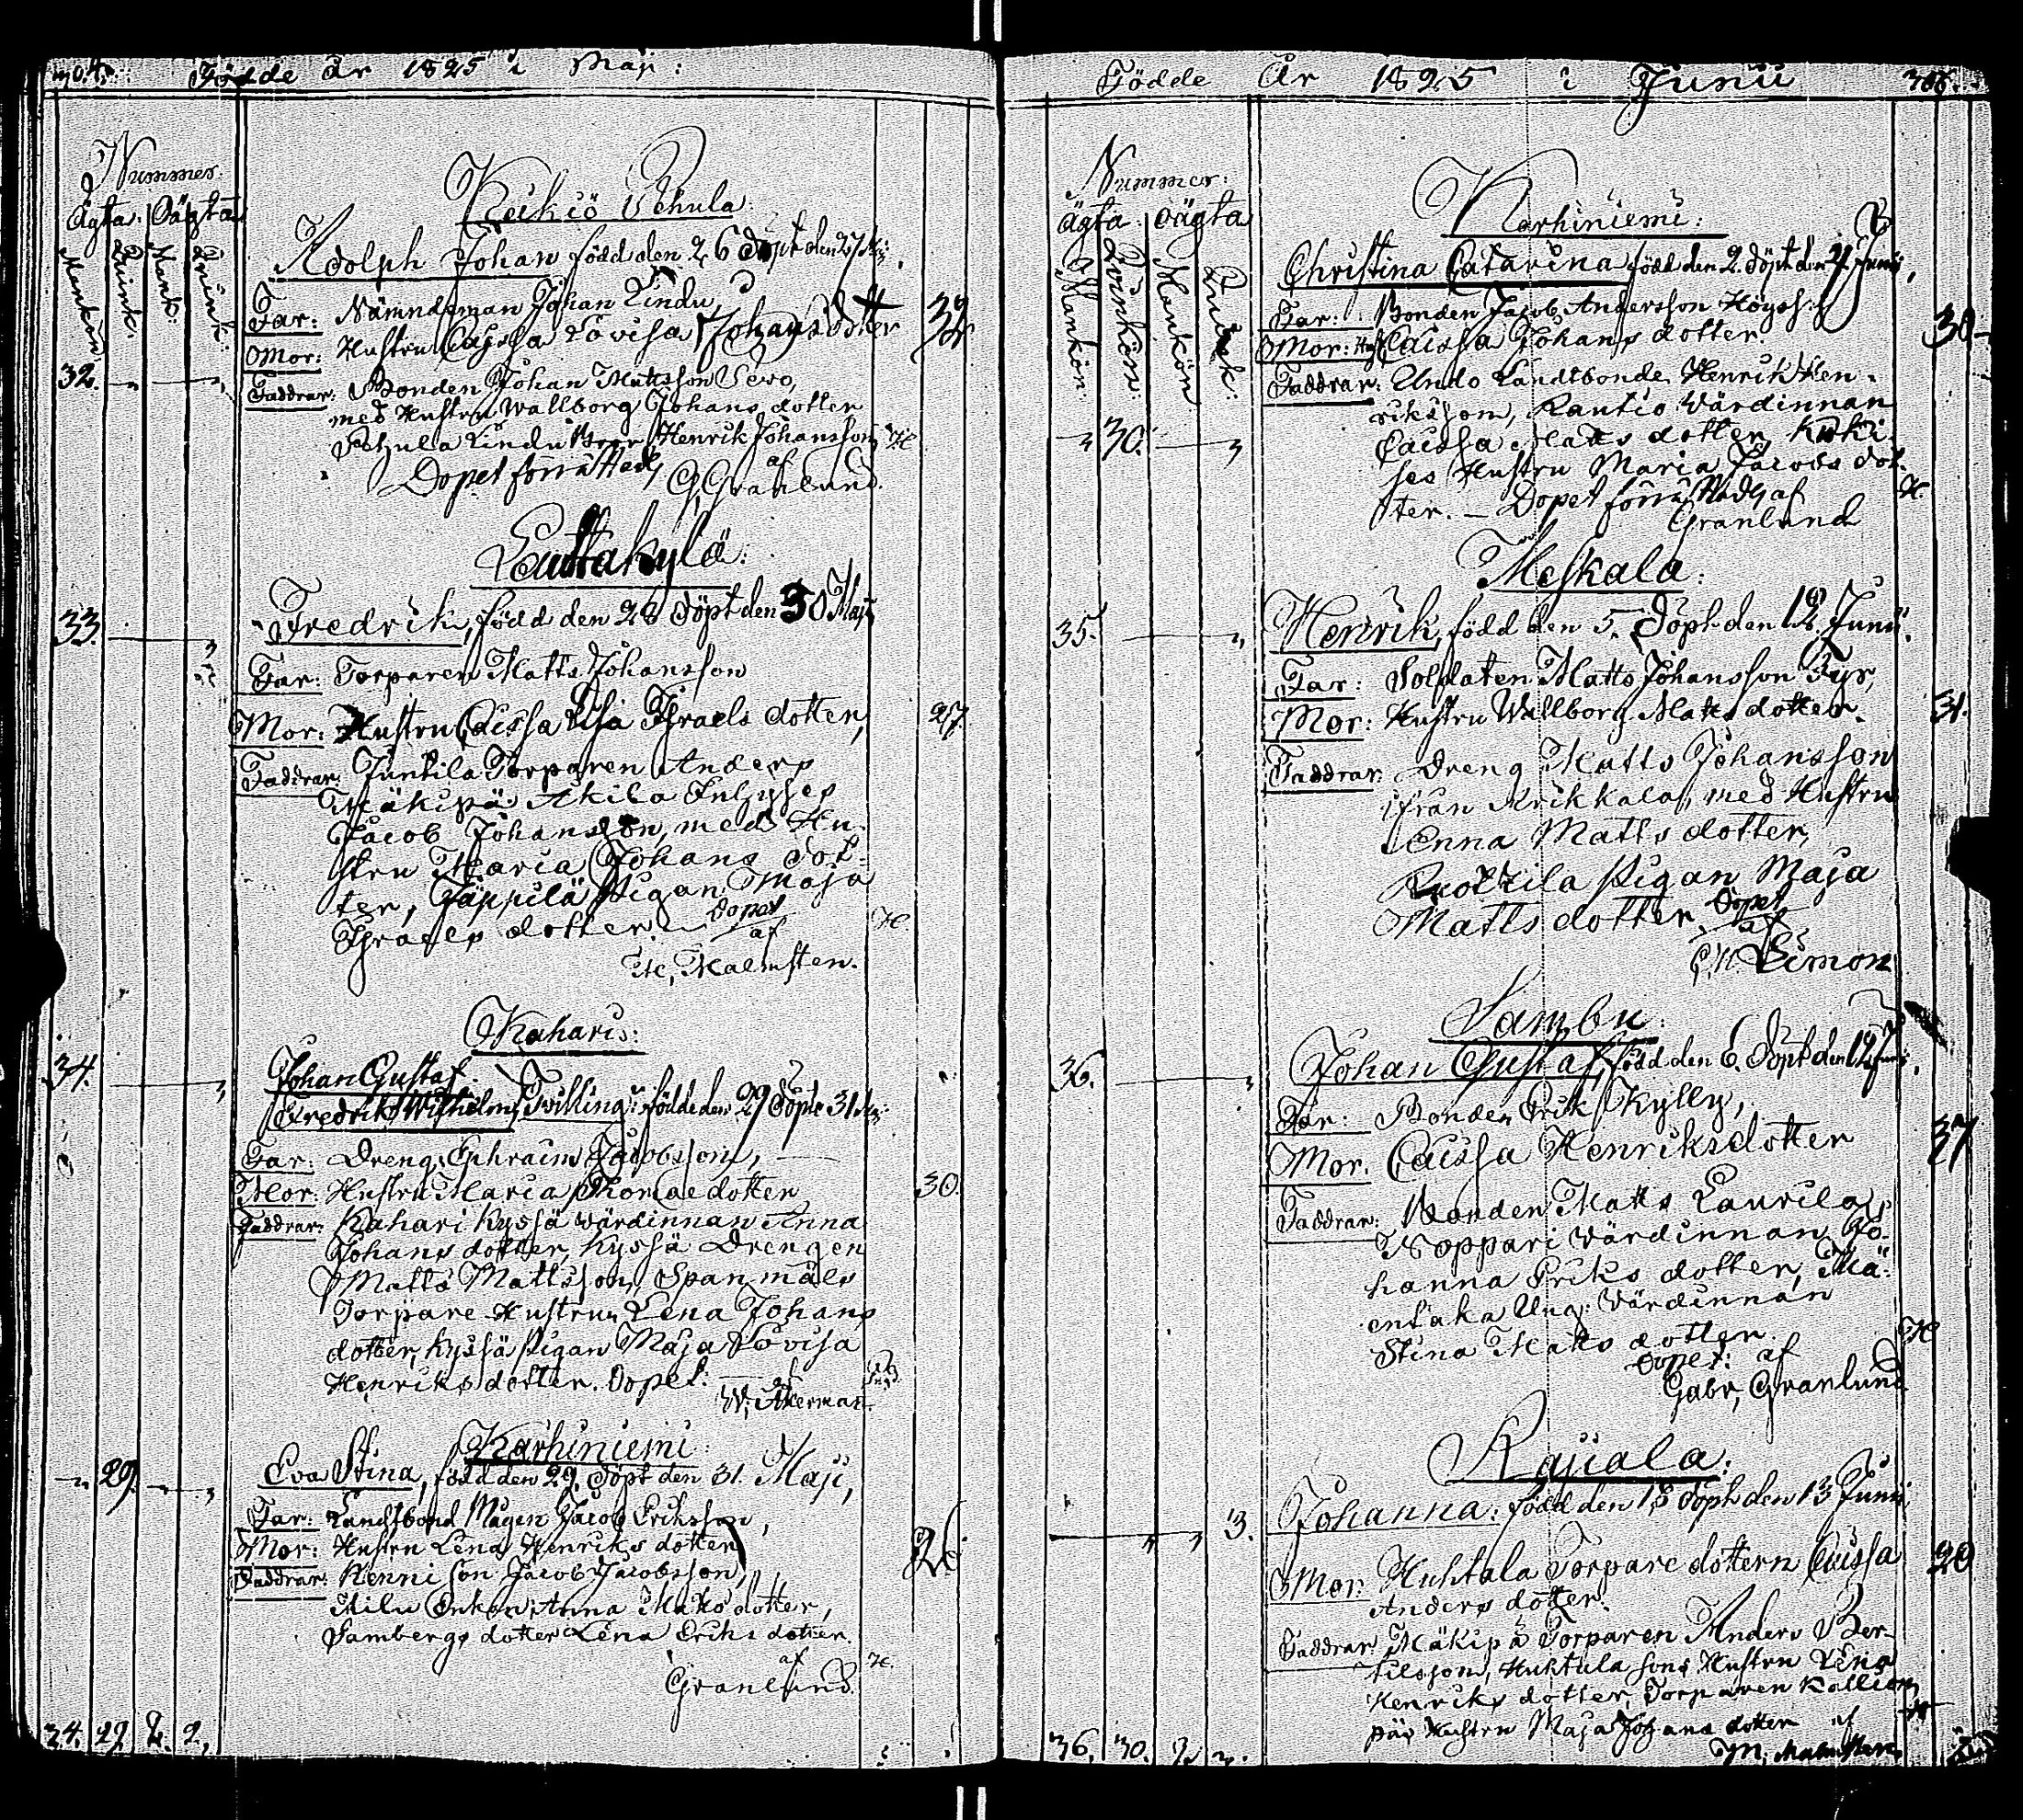 Födde år 1825 i Maji:
Nummer.
Ägta. Oägta
Mankön. Qvink. Mank. Qvink.
Keikiö Pehula
Adolph Johan född den 26 Döpt den 27
Far: Nämndeman Johan Lindu,
Mor: Hustru Cajssa Lovisa Johans dotter
32.
Faddrar: Bonden Johan Mattsson
med Hustru Wallborg Johans dotter
Pehula Lindu Henrik Johansson
H
Dopet förrättadt af
G. Granlund.
Lauttakylä:
33.
Fredrik, född den 28 Döpt den 30 Maji
Far: Torparen Matts Johansson
Mor: Hustru Caissa Lisa Israels dotter,
27.
Faddrar: Juntila Torparen Anders
Mäkipä Akila
Jacob Johansson, med Hu-
stru Maria Johans dot-
ter, Täppilä Pigan Maja
Israels dotter. Dopet
af
H.
Malmsten.
Kahari:
34.
Johan Gustaf
Fredrik Wilhelm, Tvilling: födde den 29 Döpte 31
Far: Dreng Ephraim Jacobsson,
Mor: Hustru Maria Thomae dotter
30.
Faddrar: Kahari Kyssä värdinnan Anna
Johans dotter, Kyssä Drengen
Matts Mattsson, Spanmäls
Torpare Hustrun Lena Johans
dotter, Kyssä Pigan Maja Lovisa
Henriks dotter. Dopet:
W. Åkerman.
Karhiniemi:
29.
Eva Stina, född den 29. Döpt den 31. Maji,
Far: Landtbond Mågen Jacob Eriksson,
Mor: Hustru Lena Henriks dotter
26
Faddrar: Kenni Son Jacob Jacobsson,
Enkan Anna Matts dotter,
Sambergs dotter Lena Eriks dotter.
af
H.
Granlund.
34. 29. 2. 2.
Födde År 1825 i Junii
Nummer:
Ägta. Oägta
Mankön. Qvinkön. Mankön Qvink:
Karhiniemi:
Christina Catarina född den 2. döpt den Junii,
Far: Bonden Jacob Andersson
30
Mor: Hust. Caissa Johans dotter.
Faddrar: Undo Landtbonde Henrik Hen-
riksson, Rautio Värdinnan
30.
Caissa Matts dotter,
Hustru Maria Jacobs dot-
ter. — Dopet förrättadt af
Granlund
Meskala:
35.
Henrik, född den 5. Döpt den 12. Junii.
Far: Soldaten Matts Johansson Fyr,
Mor: Hustru Wallborg Matts dotter.
31.
Faddrar: Dreng Matts Johansson
ifrån Krikkala, med Hustru
Enna Matts dotter,
Pigan Maja
Matts dotter. Dopet
af
Limon
Sambu
36.
Johan Gustaf, född den 6. Döpt den 12 Junii.
Far: Bonden Erik Kylly,
Mor. Caissa Henriksdotter
37
Faddrar: Bonden Matts Laurila,
Noppari Värdinnan Jo-
hanna Eriks dotter, Mä-
entaka Ung: Värdinnan
Stina Matts dotter.
H
Dopet: af
Gabr. Granlund
Rajiala:
3.
Johanna: född den 13 Döpt den 13 Junii
Mor: Huhtala Torpare dottern Caissa
20
Anders dotter.
Faddrar Mäkipä Torparen Anders Ber-
tilsson, Huhtala Sons Hustru Lena
Henriks dotter, Torparen Kallion
pää Hustru Maja Johans dotter af
M. Malmsten
36. 30.